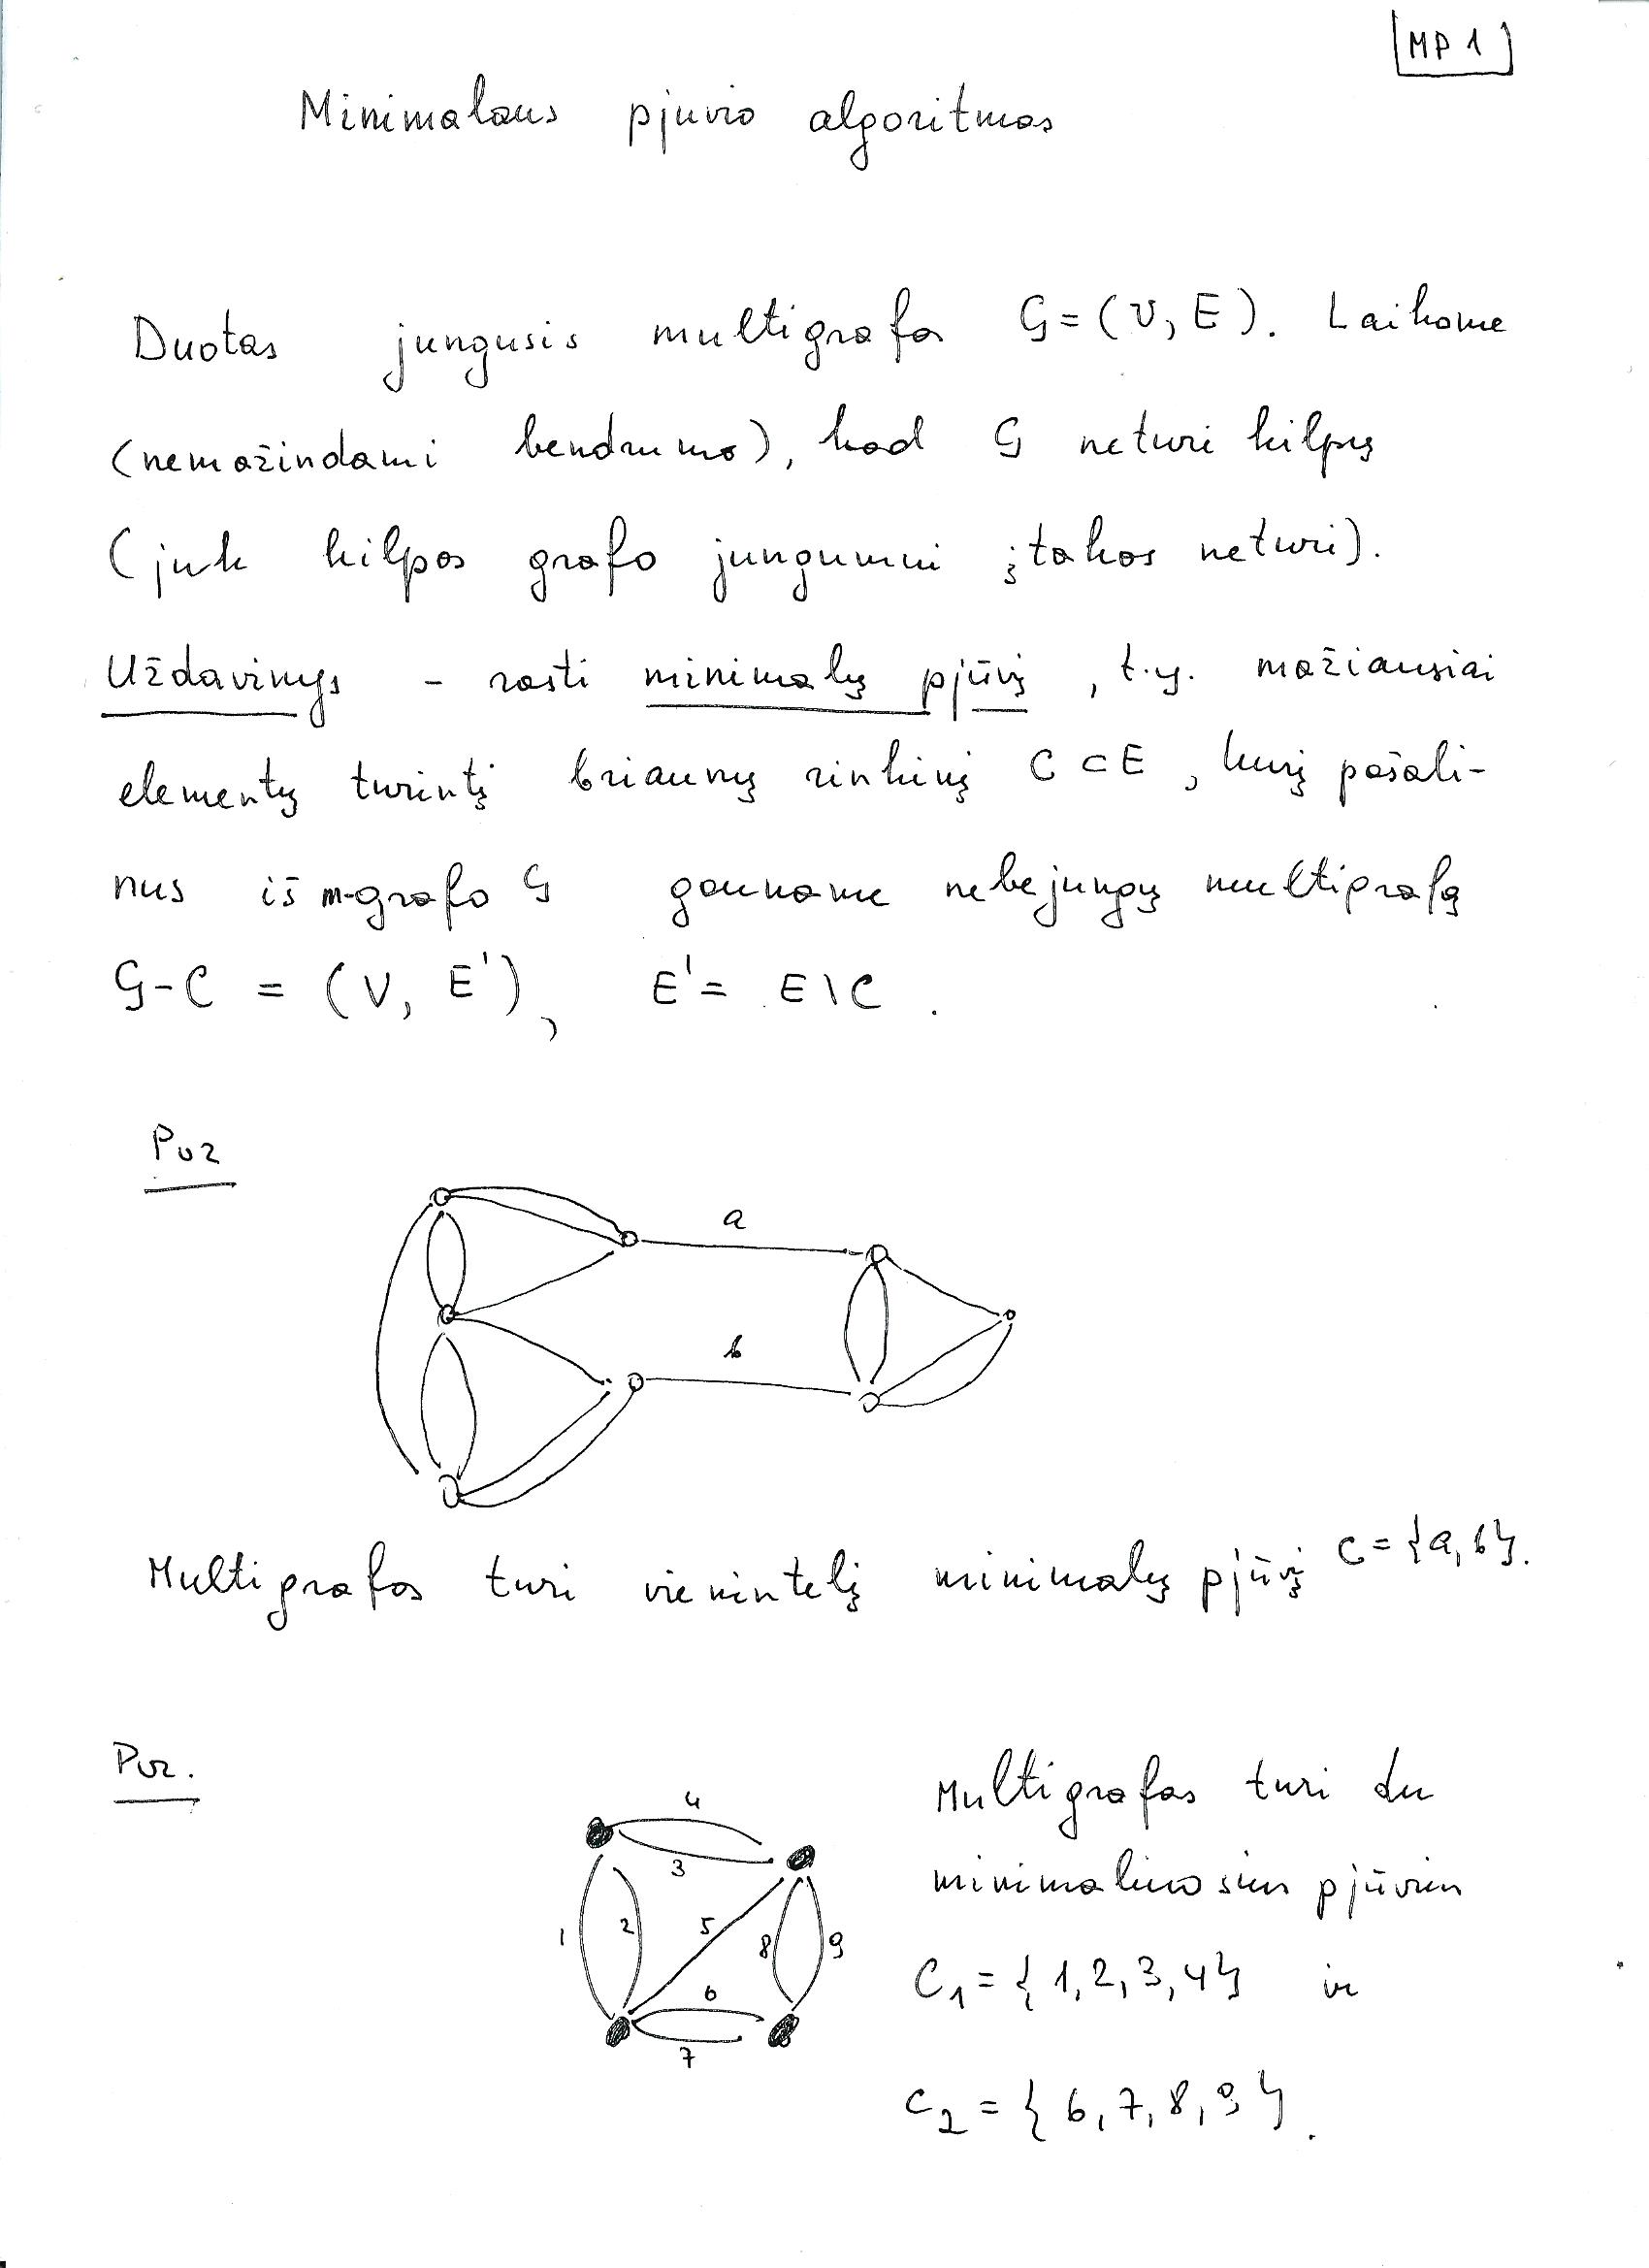 MP 1
Minimalaus pjuvio algoritmas
Duotas jungusis multigrafas G=(V, E). Laikome
(nemažindami bendrumo), kad G neturi kilpų
(juk kilpos grafo jungumui įtakos neturi).
Uždavinys - rasti minimalų pjūvį, t.y. mažiausiai
elementų turintį briaunų rinkinį C ⊂ E, kurį pašali-
nus iš m-grafo G gauname nebejungų multigrafą
G-C = (V, E'), E' = E \ C.
Pvz
a
b
Multigrafas turi vienintelį minimalų pjūvį C = {a, b}.
Pvz.
4
3
1
2
5
8
9
6
7
Multigrafas turi du
minimaliuosius pjūvius
C₁ = {1, 2, 3, 4} ir
C₂ = {6, 7, 8, 9}.